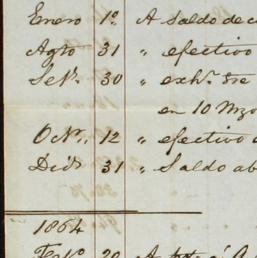 Enero 1º A Saldo de c
Agto 31 " efectivo
Set. 30 " exhº. Sre
en 10 Mzo
Oct., 12 " efectivo
Dic. 31 " Saldo ab
1864
20 A